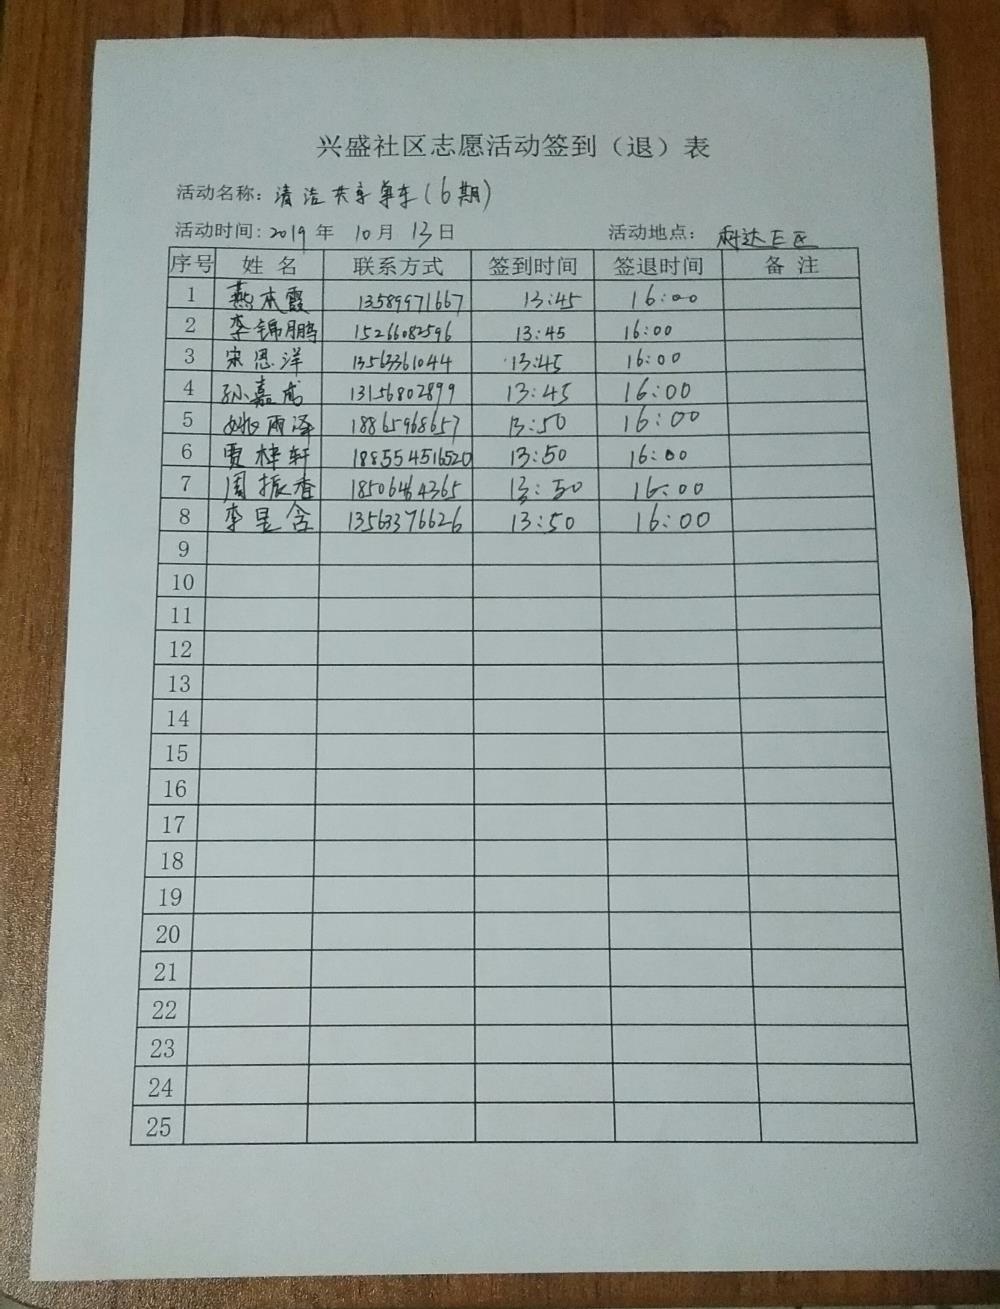 兴盛社区志愿活动签到（退）表
活动名称：清洁共享单车（6期）
活动时间：2019年 10月 13日 活动地点：科达E区
序号 姓名 联系方式 签到时间 签退时间 备注
1 燕本霞 13589971667 13:45 16:00
2 李锦鹏 15266082596 13:45 16:00
3 宋思洋 13563361044 13:45 16:00
4 孙嘉 13156802899 13:45 16:00
5 姚雨泽 18865968657 13:50 16:00
6 贾梓轩 188554516520 13:50 16:00
7 周振香 18506464365 13:50 16:00
8 李昱含 13563376626 13:50 16:00
9
10
11
12
13
14
15
16
17
18
19
20
21
22
23
24
25